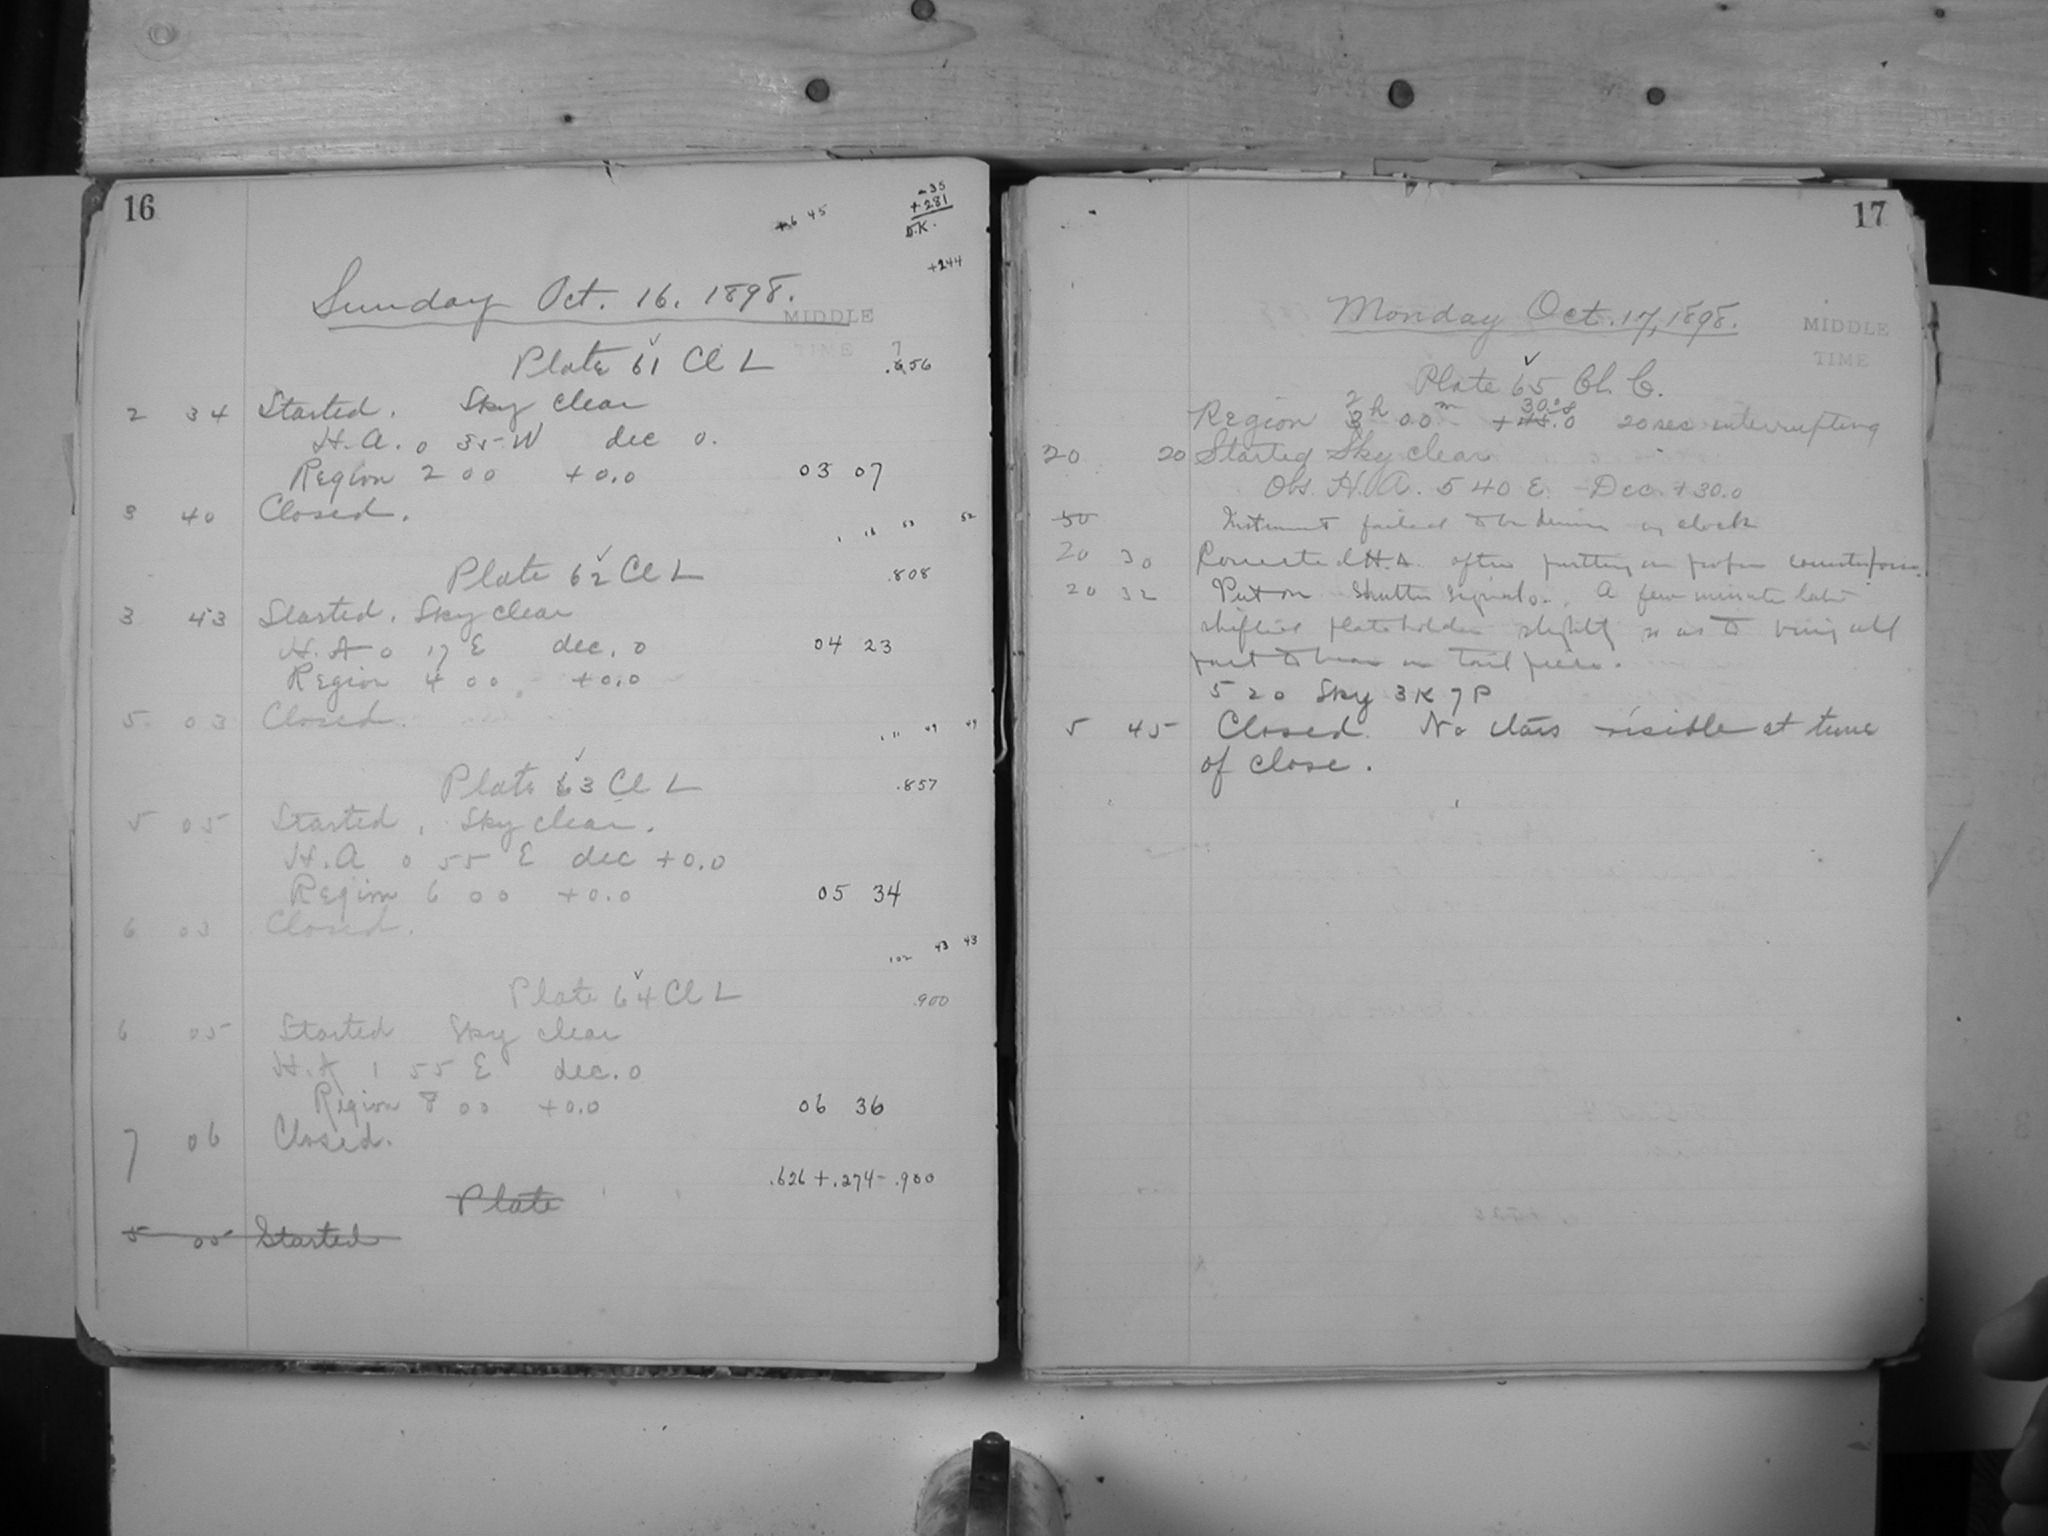 16
+6 45
-35
+281
O.K.
+244
Sunday Oct. 16. 1898.
MIDDLE
TIME
Plate 61 Cl L
7
.656
2 34 Started. Sky clear
H.A. 0 35 W dec 0.
Region 2 00 +0.0 03 07
3 40 Closed.
1 16 53 52
Plate 62 Cl L .808
3 43 Started. Sky clear
H.A 0 17 E dec. 0 04 23
Region 4 00 +0.0
5 03 Closed.
49 49
Plate 63 Cl L .857
5 05 Started, Sky clear.
H.A 0 55 E dec +0.0
Region 6 00 +0.0 05 34
6 03 Closed.
102 43 43
Plate 64 Cl L .900
6 05 Started Sky clear
H.A 1 55 E dec. 0
Region 8 00 +0.0 06 36
7 06 Closed.
.626 + .274 = .900
Plate
5 05 Started
17
Monday Oct. 17, 1898.
MIDDLE
TIME
Plate 65 Ch. C.
2 30.0
Region 3h 00m + .0 20 sec interrupting
20 20 Started Sky clear
Obs. H.A. 5 40 E. Dec. +30.0
50 Instrument failed to be driven by clock
20 30 Corrected H.A. after putting on proper counterpoise.
20 32 Put on Shutter signals. A few minutes later
shifted plateholder slightly so as to bring all
part to bear on tail piece.
5 20 Sky 3K 7P
5 45 Closed. No stars visible at time
of close.